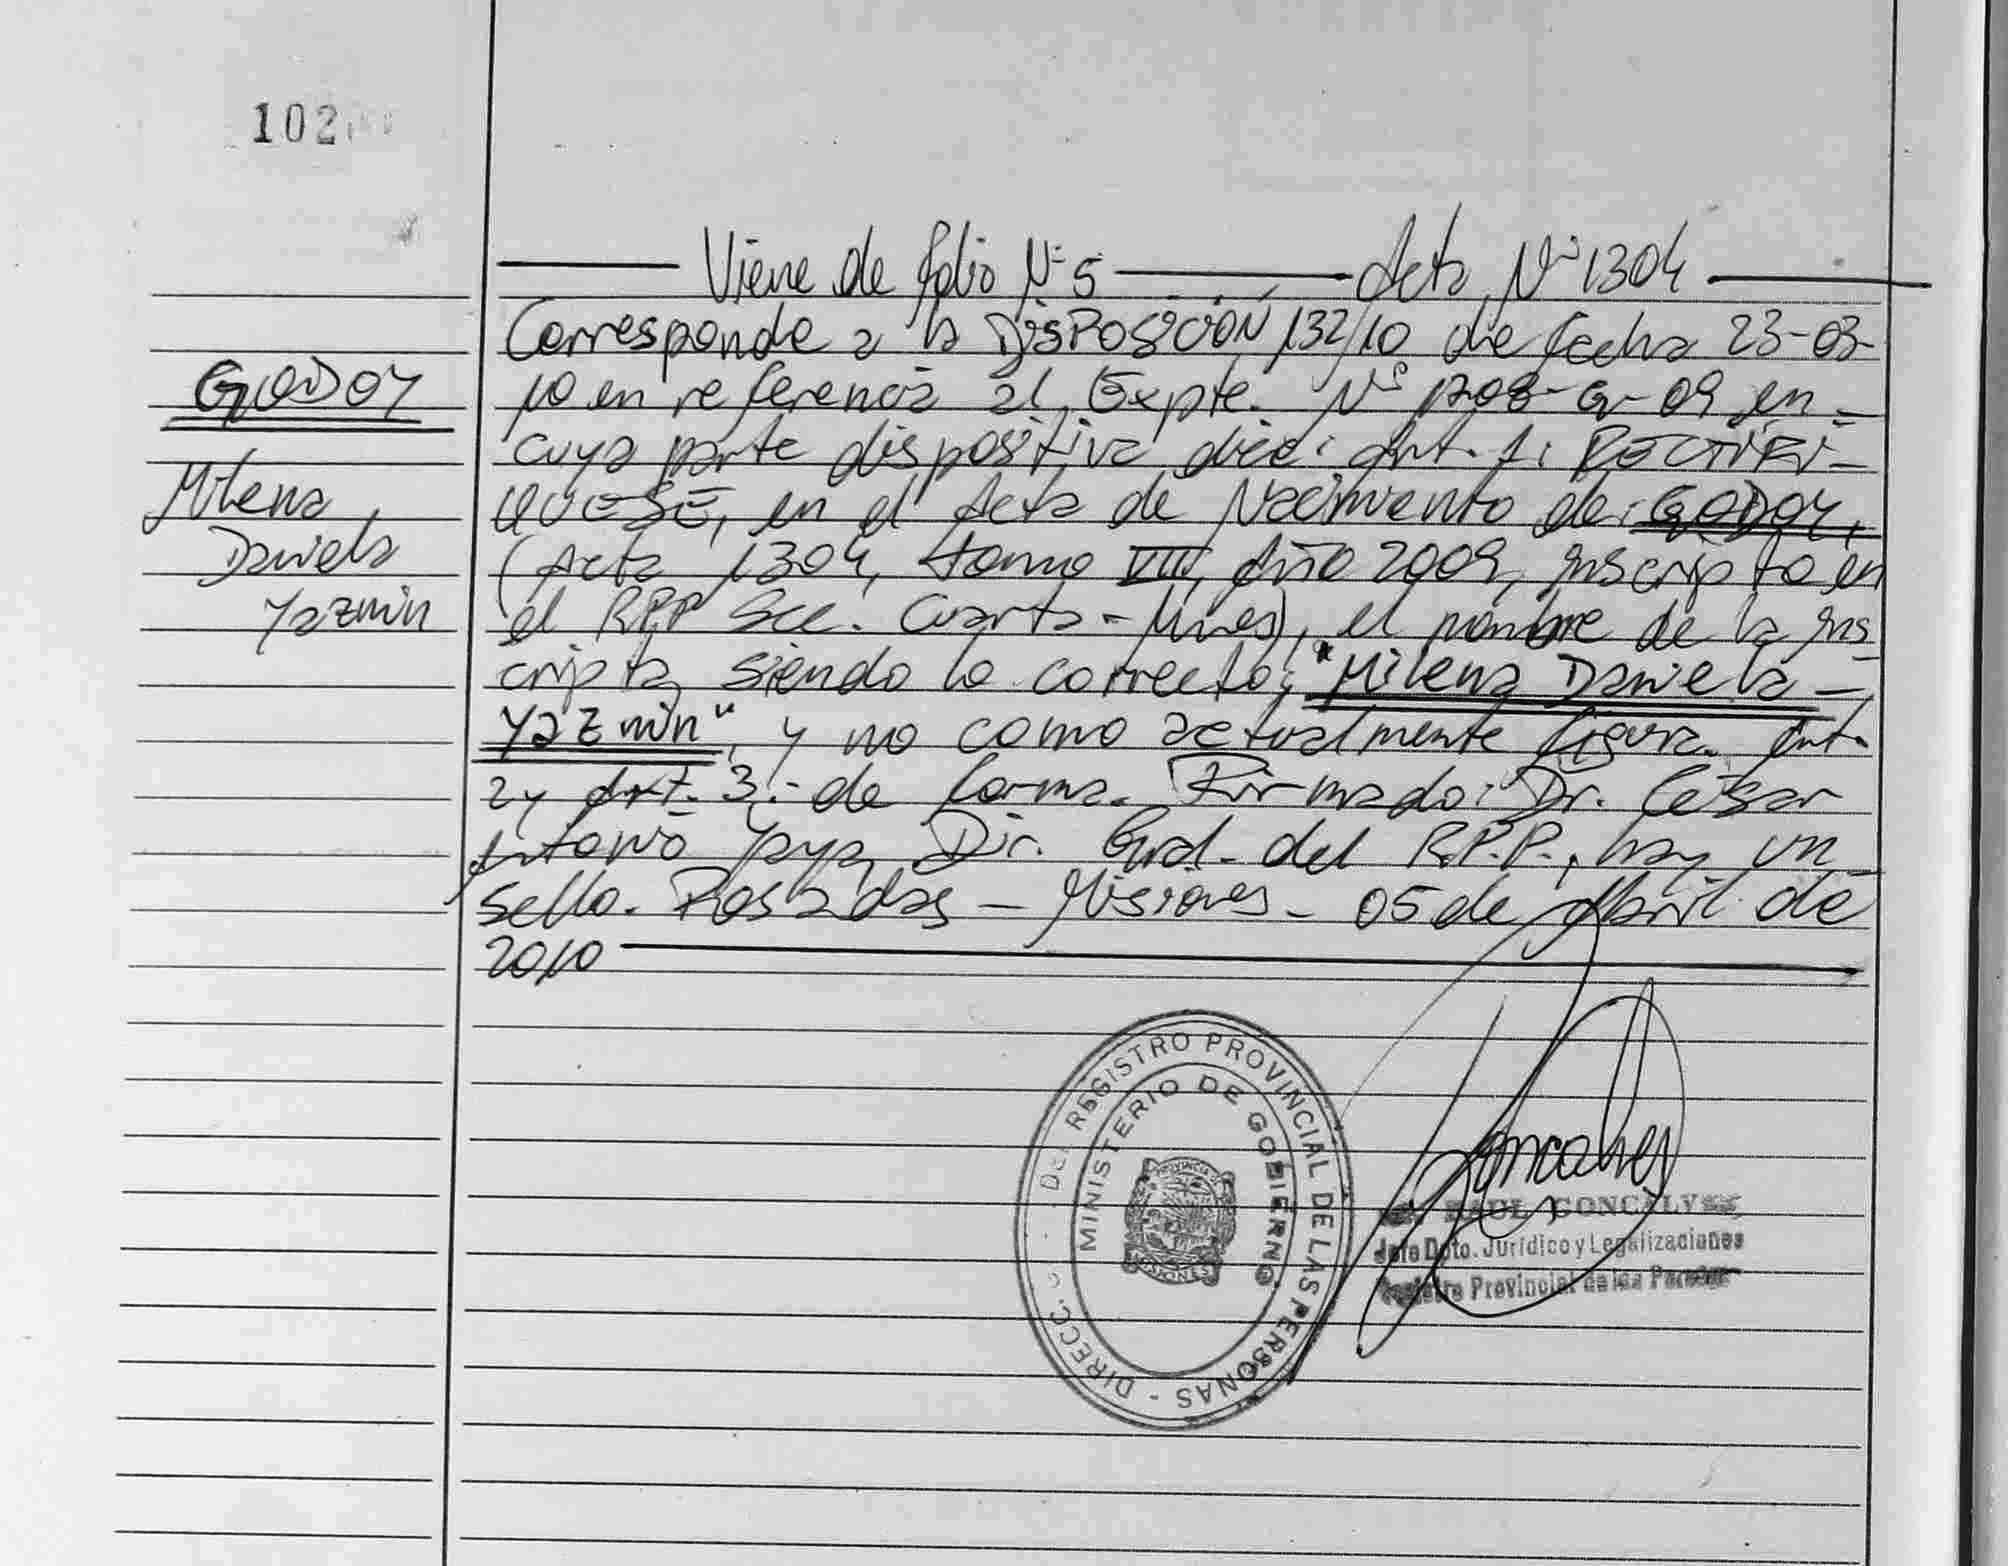 102
Viene de folio Nº 5 Acta Nº 1304
Corresponde a la DISPOSICIÓN 132/10 de fecha 23-03-
10 en referencia al Expte. Nº 1208-G-09 en-
cuya parte dispositiva dice: Art. 1: RECTIFI-
QUESE, en el Acta de Nacimiento de: GODOY,
(Acta 1304, tomo VIII, Año 2009, inscripto en
el RPP Sec. Cuarta - Mnes), el nombre de la ins
cripta, siendo lo correcto, "Milena Daniela-
Yazmin", y no como actualmente figura. Art.
2 y Art. 3.- de forma. Firmado: Dr. César
Antonio Yaya, Dir. Gral. del R.P.P., hay un
sello. Posadas - Misiones - 05 de Abril de
2010
GODOY
Milena
Daniela
Yazmin
DEL REGISTRO PROVINCIAL DE LAS PERSONAS - DIRECC
MINISTERIO DE GOBIERNO
PROVINCIA
MISIONES
Goncalves
RAUL GONCALVES
Jefe Dpto. Jurídico y Legalizaciones
Registro Provincial de las Personas